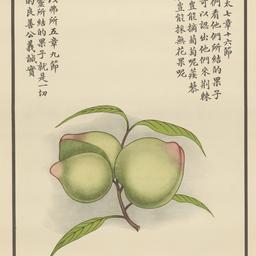 太七章十六節
們看他們所結的果子
可以認出他們來荆棘
豈能摘葡萄呢蒺藜
豈能採無花果呢
弗所五章九節
所結的果子就是一切
的良善公義誠實